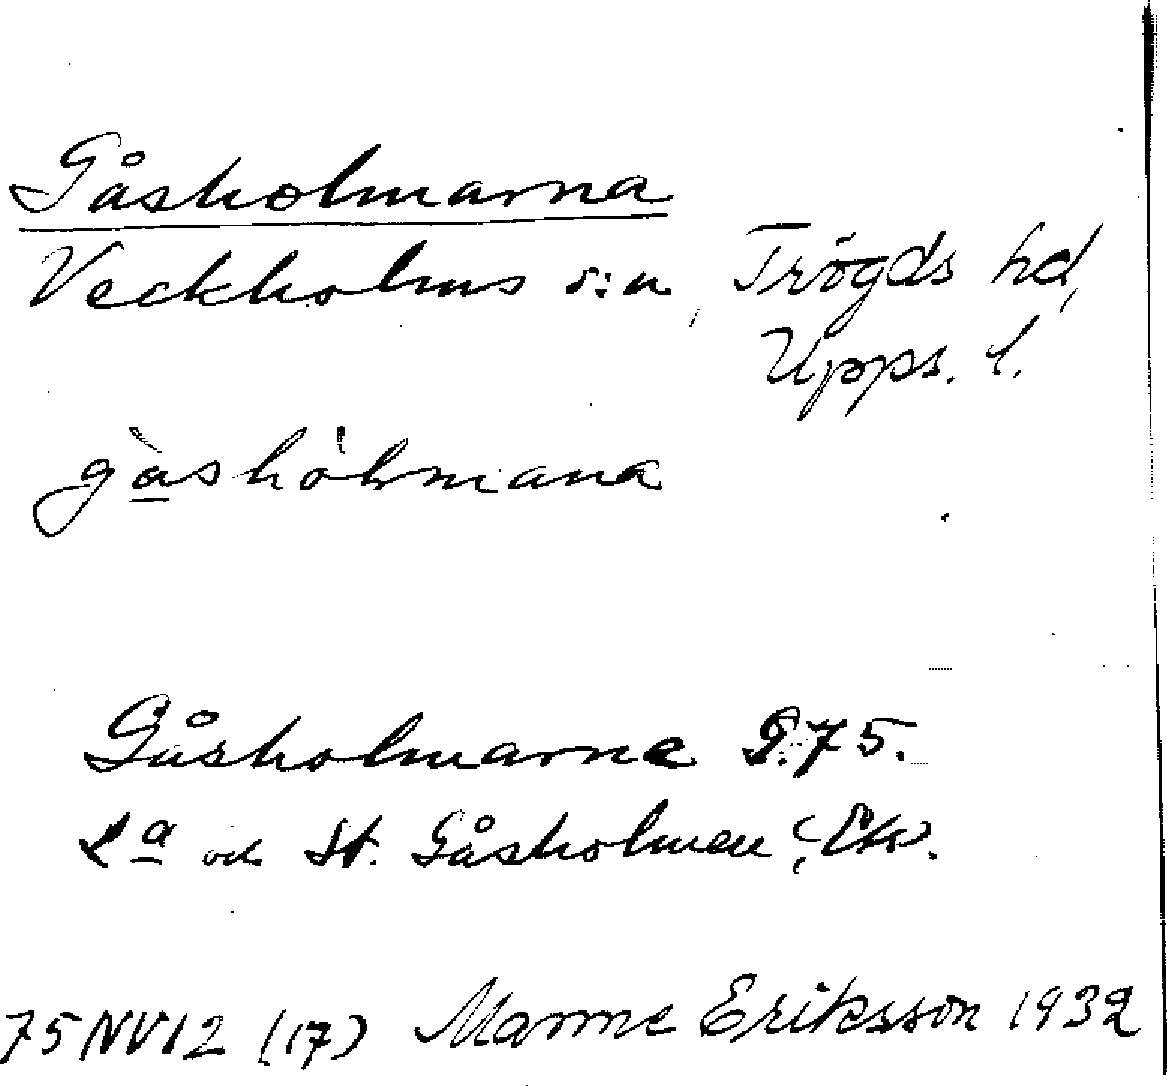 Gåsholmarna
Veckholms s:n, Trögds hd,
Upps. l.
gåshólmana
Gåsholmarna G. 75.
La och St. Gåsholmen, Ek.
75NV12 (17) Manne Eriksson 1932